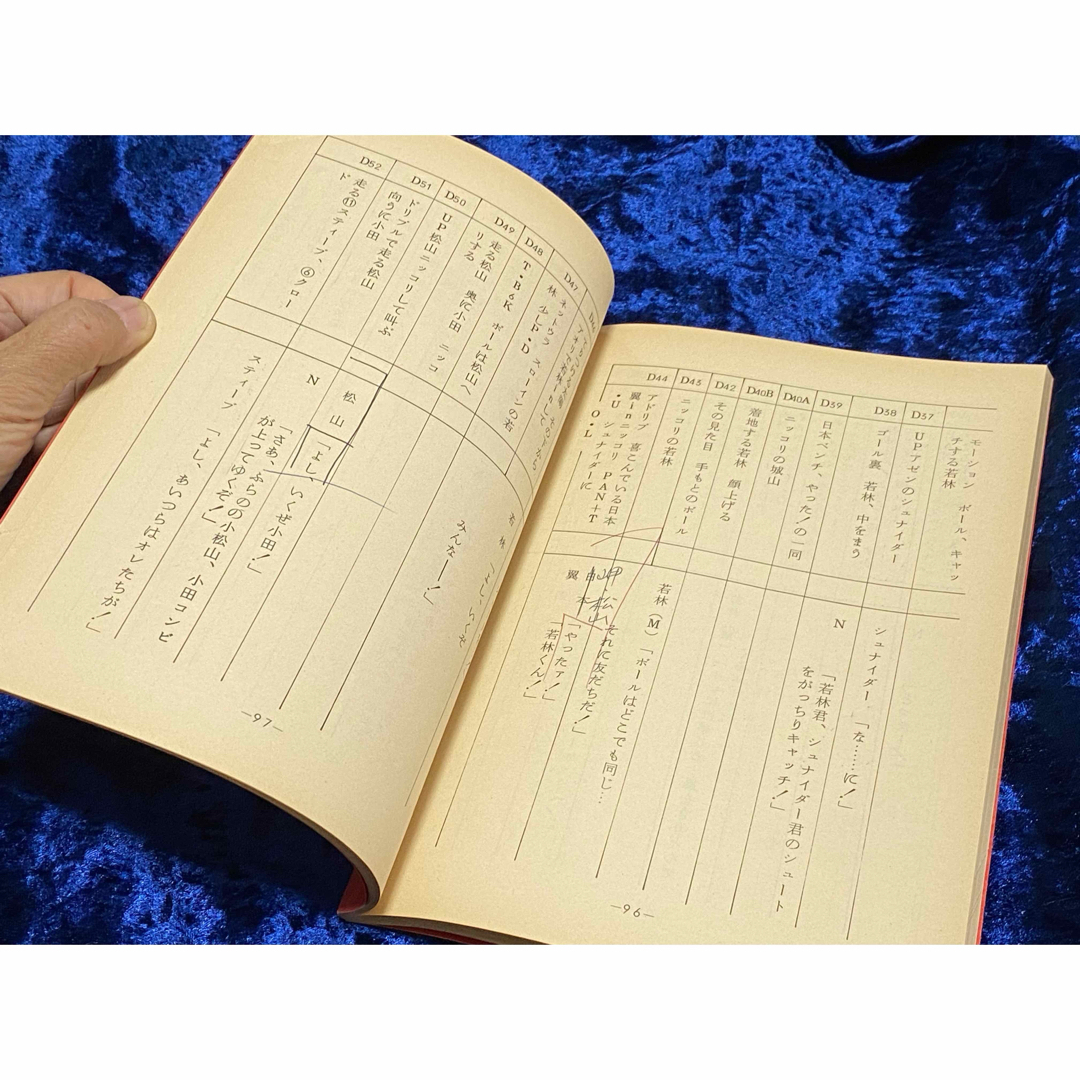 モーション ボール、キャッ
チする若林
D37
UPアゼンのシュナイダー
シュナイダー 「な……に！」
D38
ゴール裏 若林、中をまう
N 「若林君、シュナイダー君のシュート
をがっちりキャッチ！」
D39
日本ベンチ、やった！の一同
D40A
ニッコリの城山
D40B
着地する若林 顔上げる
D42
その見た目 手もとのボール
若林（M）「ボールはどこでも同じ…
それに友だちだ！」
D43
ニッコリの若林
D44
アドリブ 喜こんでいる日本
翼inニッコリ PAN+T
・U シュナイダーに
O・L
岬 松山
「やったァ！」
翼 「若林くん！」
—96—
D47
ネットウラ スローインの若
林 少しP・D
若林 「よし、いくぞ
みんなー！」
D48
T・B6K ボールは松山へ
D49
走る松山 奥に小田 ニッコ
リする
D50
UP松山ニッコリして叫ぶ
松山 「よし、いくぜ小田！」
D51
ドリブルで走る松山
向うに小田
N 「さあ、ふらのの小松山、小田コンビ
が上ってゆくぞ！」
D52
走る⑪スティーブ、⑥クロー
ド
スティーブ 「よし、あいつらはオレたちが！」
—97—